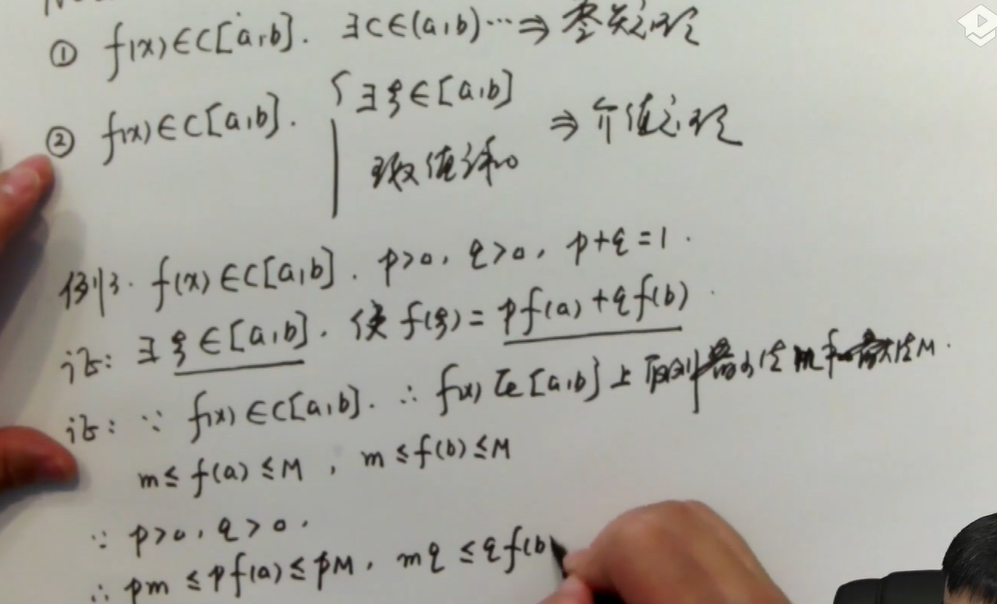 ① f(x)∈C[a,b]. ∃c∈(a,b)…⇒ 零点定理
② f(x)∈C[a,b]. { ∃ξ∈[a,b] ⇒ 介值定理
函数值论
例3. f(x)∈C[a,b]. p>0, q>0, p+q=1.
证: ∃ξ∈[a,b]. 使 f(ξ)=pf(a)+qf(b).
证: ∵ f(x)∈C[a,b]. ∴ f(x)在[a,b]上取到最小值m和最大值M.
m≤f(a)≤M, m≤f(b)≤M
∵ p>0, q>0.
∴ pm≤pf(a)≤pM, mq≤qf(b